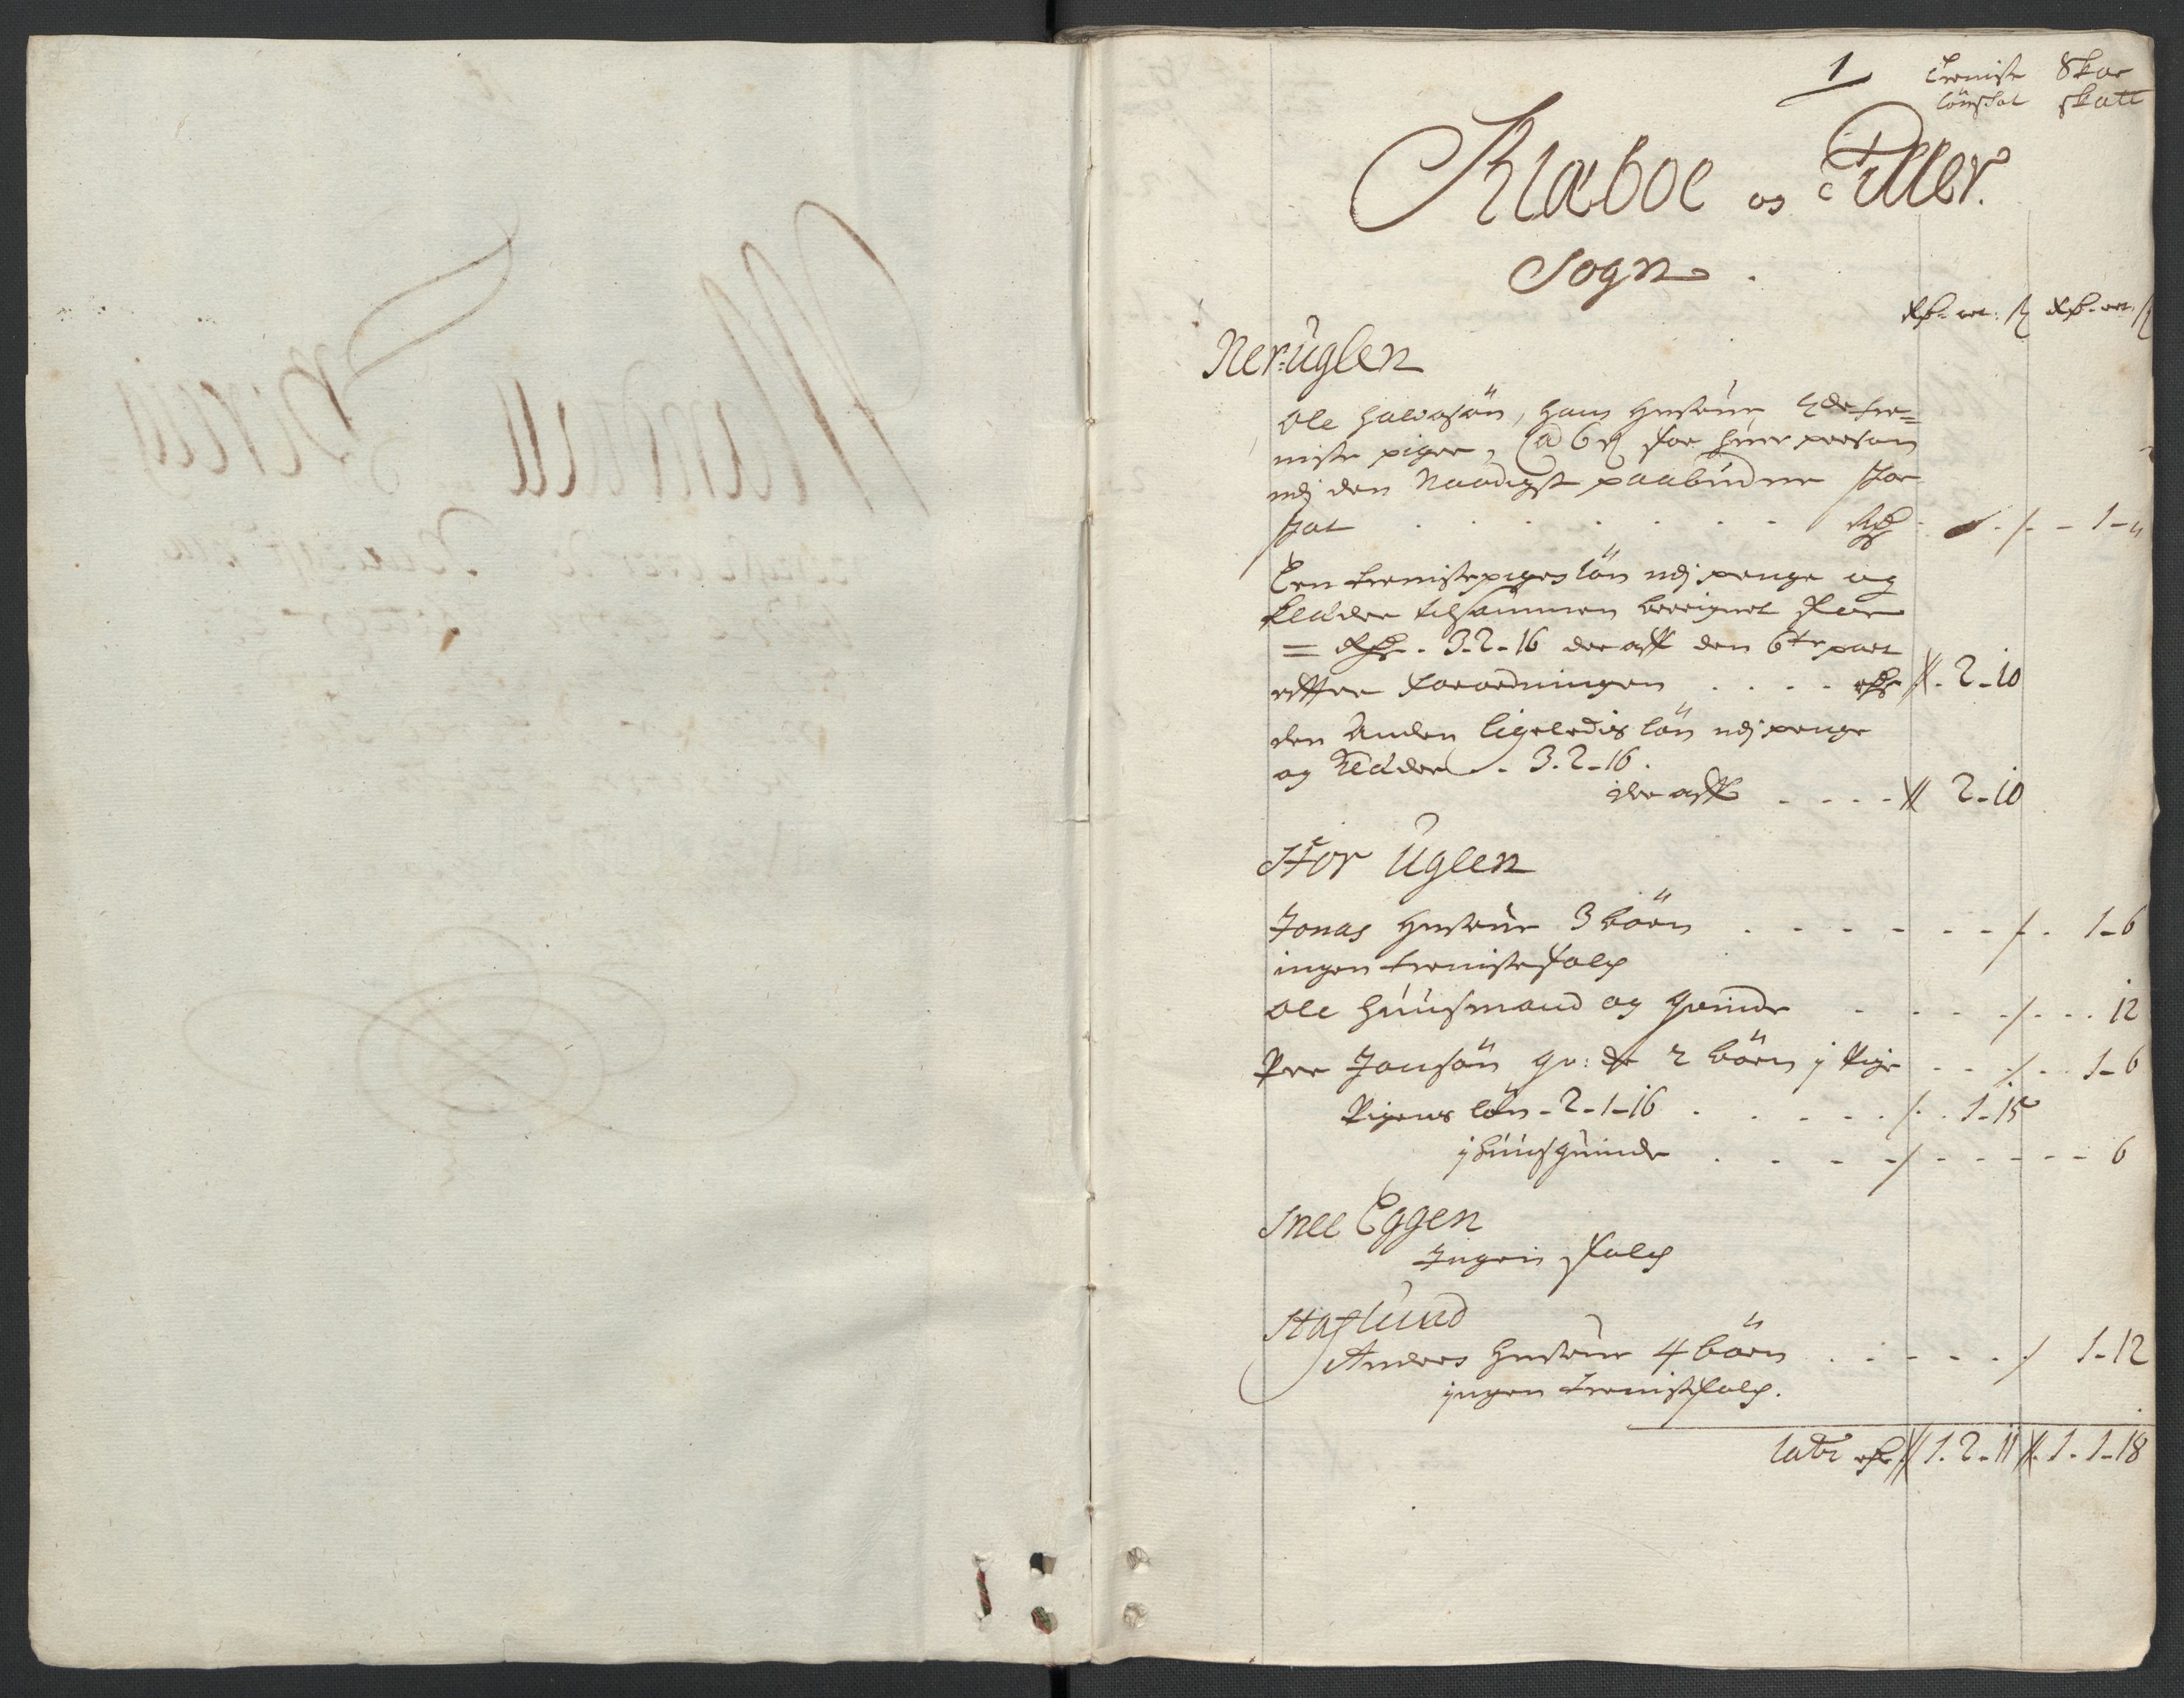 1
Tieniste Skoe
lönskat skatt
Klæboe og Tiller
Sogn
Rdr- ort: ß Rdr- ort: ß
Ner-Uglen
Ole Halvorsön, hans Hustrue 2de tie=
niste piger, @ 6 ß for huer person
udj den Naadigst paabudne skoe
skat . . . . . . . Rdr - 1 -
Een tienistepiges lön udj penge og
klæder tilsammen beregnet for
= Rdr. 3-2-16 der aff den 6te part
effter Forordningen . . . . Rdr . 2-10
den Anden ligeledis lön udj penge
og Klæder . 3.2-16.
der aff . . . . 2-10
Stor Uglen
Jonas Hustrue 3 börn . . . . . . 1-6
ingen tienistefolch
Ole Huusmand og Quinde . . . . . 12
Per Jonsön qv: 2 börn j Pige . . . . 1-6
Pigens lön - 2-1-16 . . . . . 1-15
j huusquinde . . . . . . 6
Snee Eggen
Ingen folch
Staflund
Anders Hustrue 4 börn . . . . . 1-12
jngen tienistfolch.
latr Rdr 1. 2-11 1. 1-18